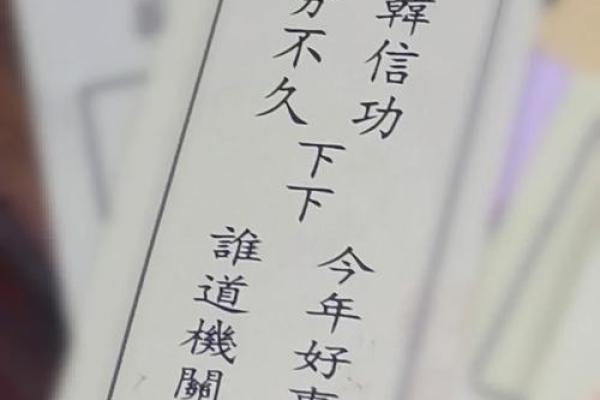 韓信功
不久
下下
今年好
誰道機關